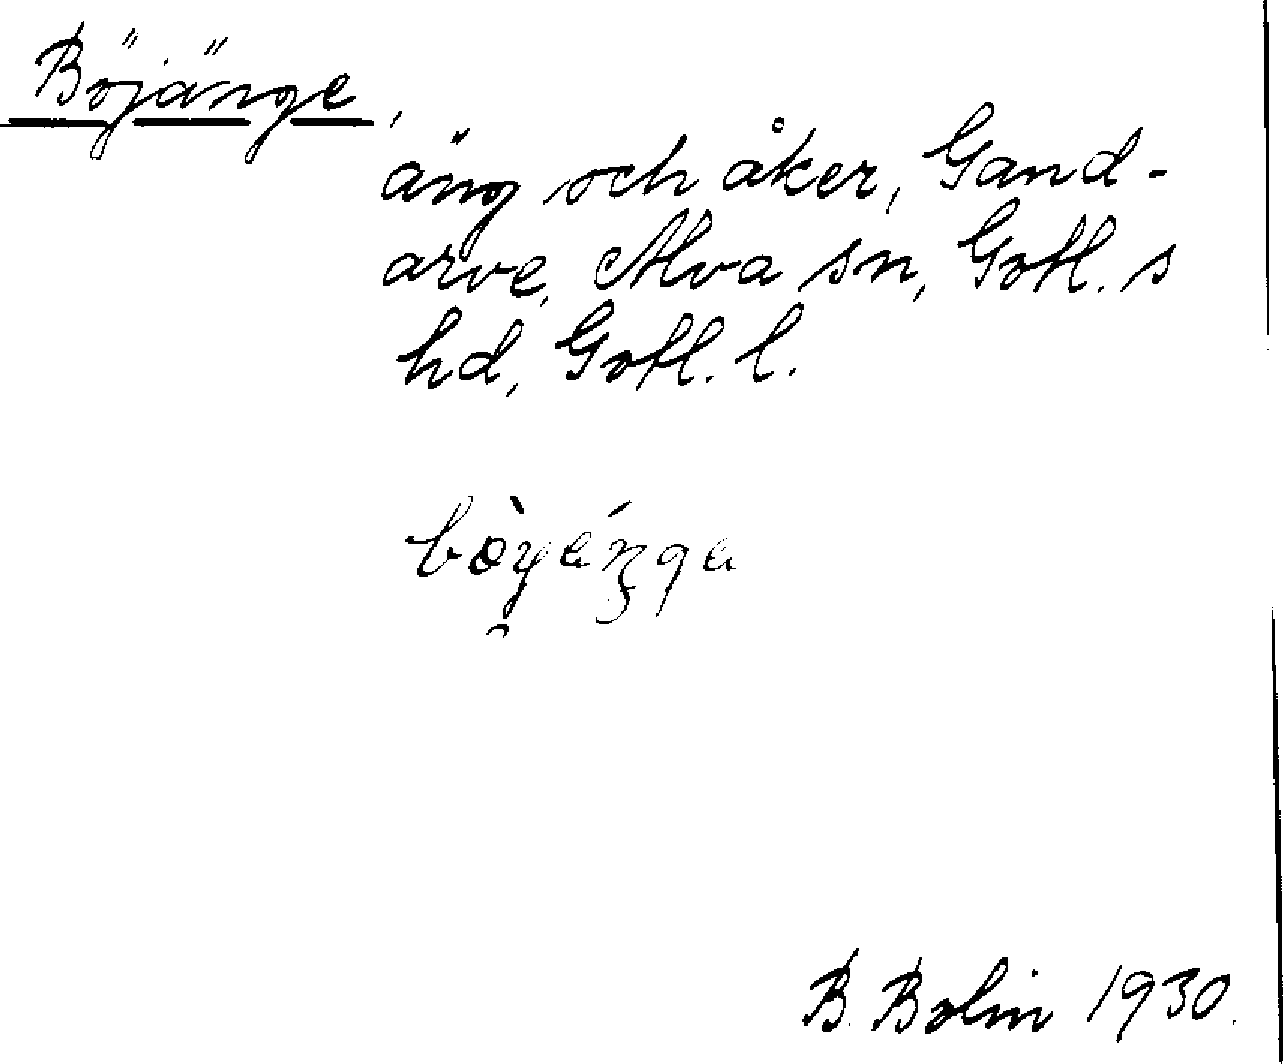 Böjänge,
äng och åker, Gand-
arve, Alva sn, Gotl. s
hd, Gotl. l.
B. Bolin 1930.